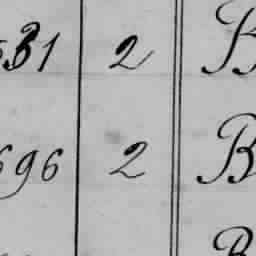 31 2 B
696 2 B
B